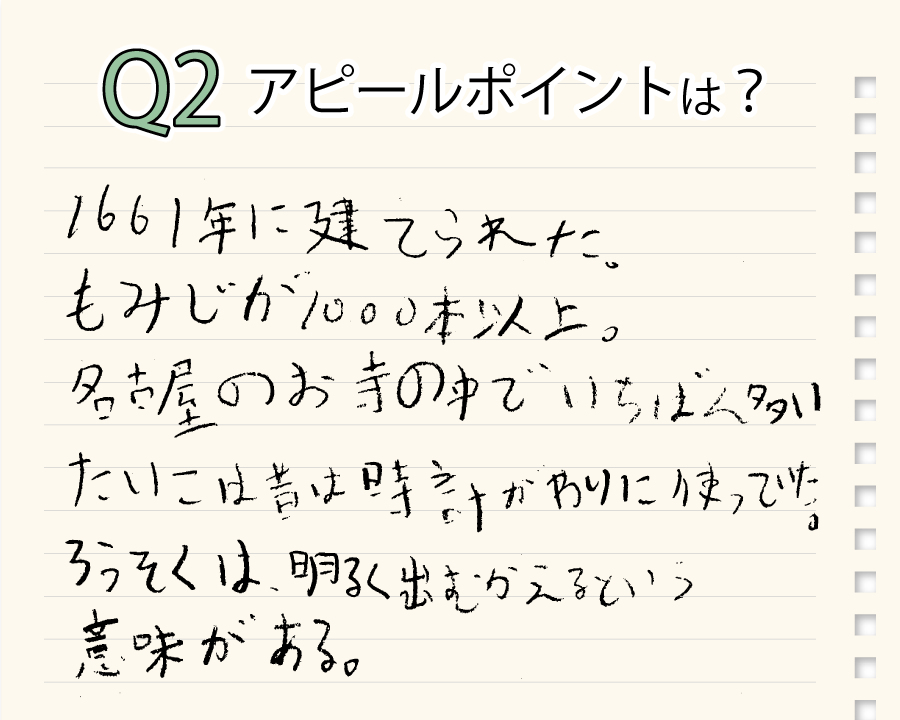 Q2 アピールポイントは？
1661年に建てられた。
もみじが1000本以上。
名古屋のお寺の中でいちばん多い
たいこは昔は時計がわりに使っていた。
ろうそくは、明るく出むかえるという
意味がある。